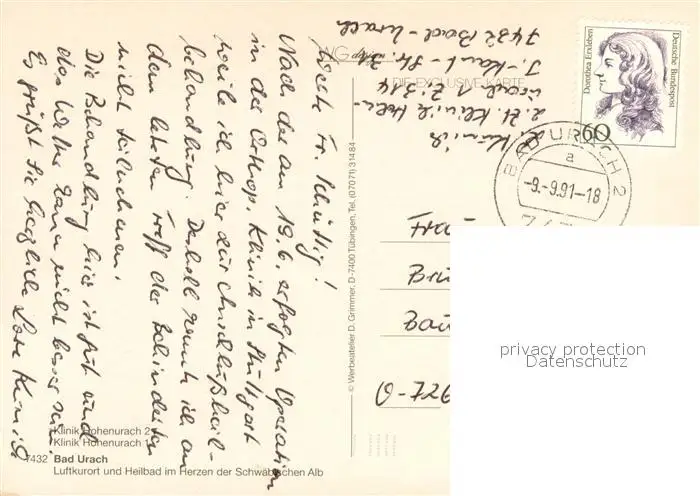 L. Kunick
z. Zt. Klinik Hohen-
urach I Z. 314
I.-Kant-Str. 31
7432 Bad-Urach
Liebe Fr. Schüttig!
Nach der am 19.6. erfolgten Operation
in der Orthop. Klinik in Stuttgart
weile ich hier zur Anschlußheil-
behandlung. Deshalb konnte ich an
dem letzten Treff der Behinderten
nicht teilnehmen.
Die Behandlung hier ist gut und
das Wetter kann nicht besser sein.
Es grüßt Sie herzlich Lore Kunick
DIE EXCLUSIVE-KARTE
Dorothea Erxleben
Deutsche Bundespost
60
BAD URACH 2
a
-9.-9.91-18
© Werbeatelier D. Grimmer, D-7400 Tübingen, Tel. (07071) 31484
privacy protection
Datenschutz
Klinik Hohenurach 2
Klinik Hohenurach 1
7432 Bad Urach
Luftkurort und Heilbad im Herzen der Schwäbischen Alb